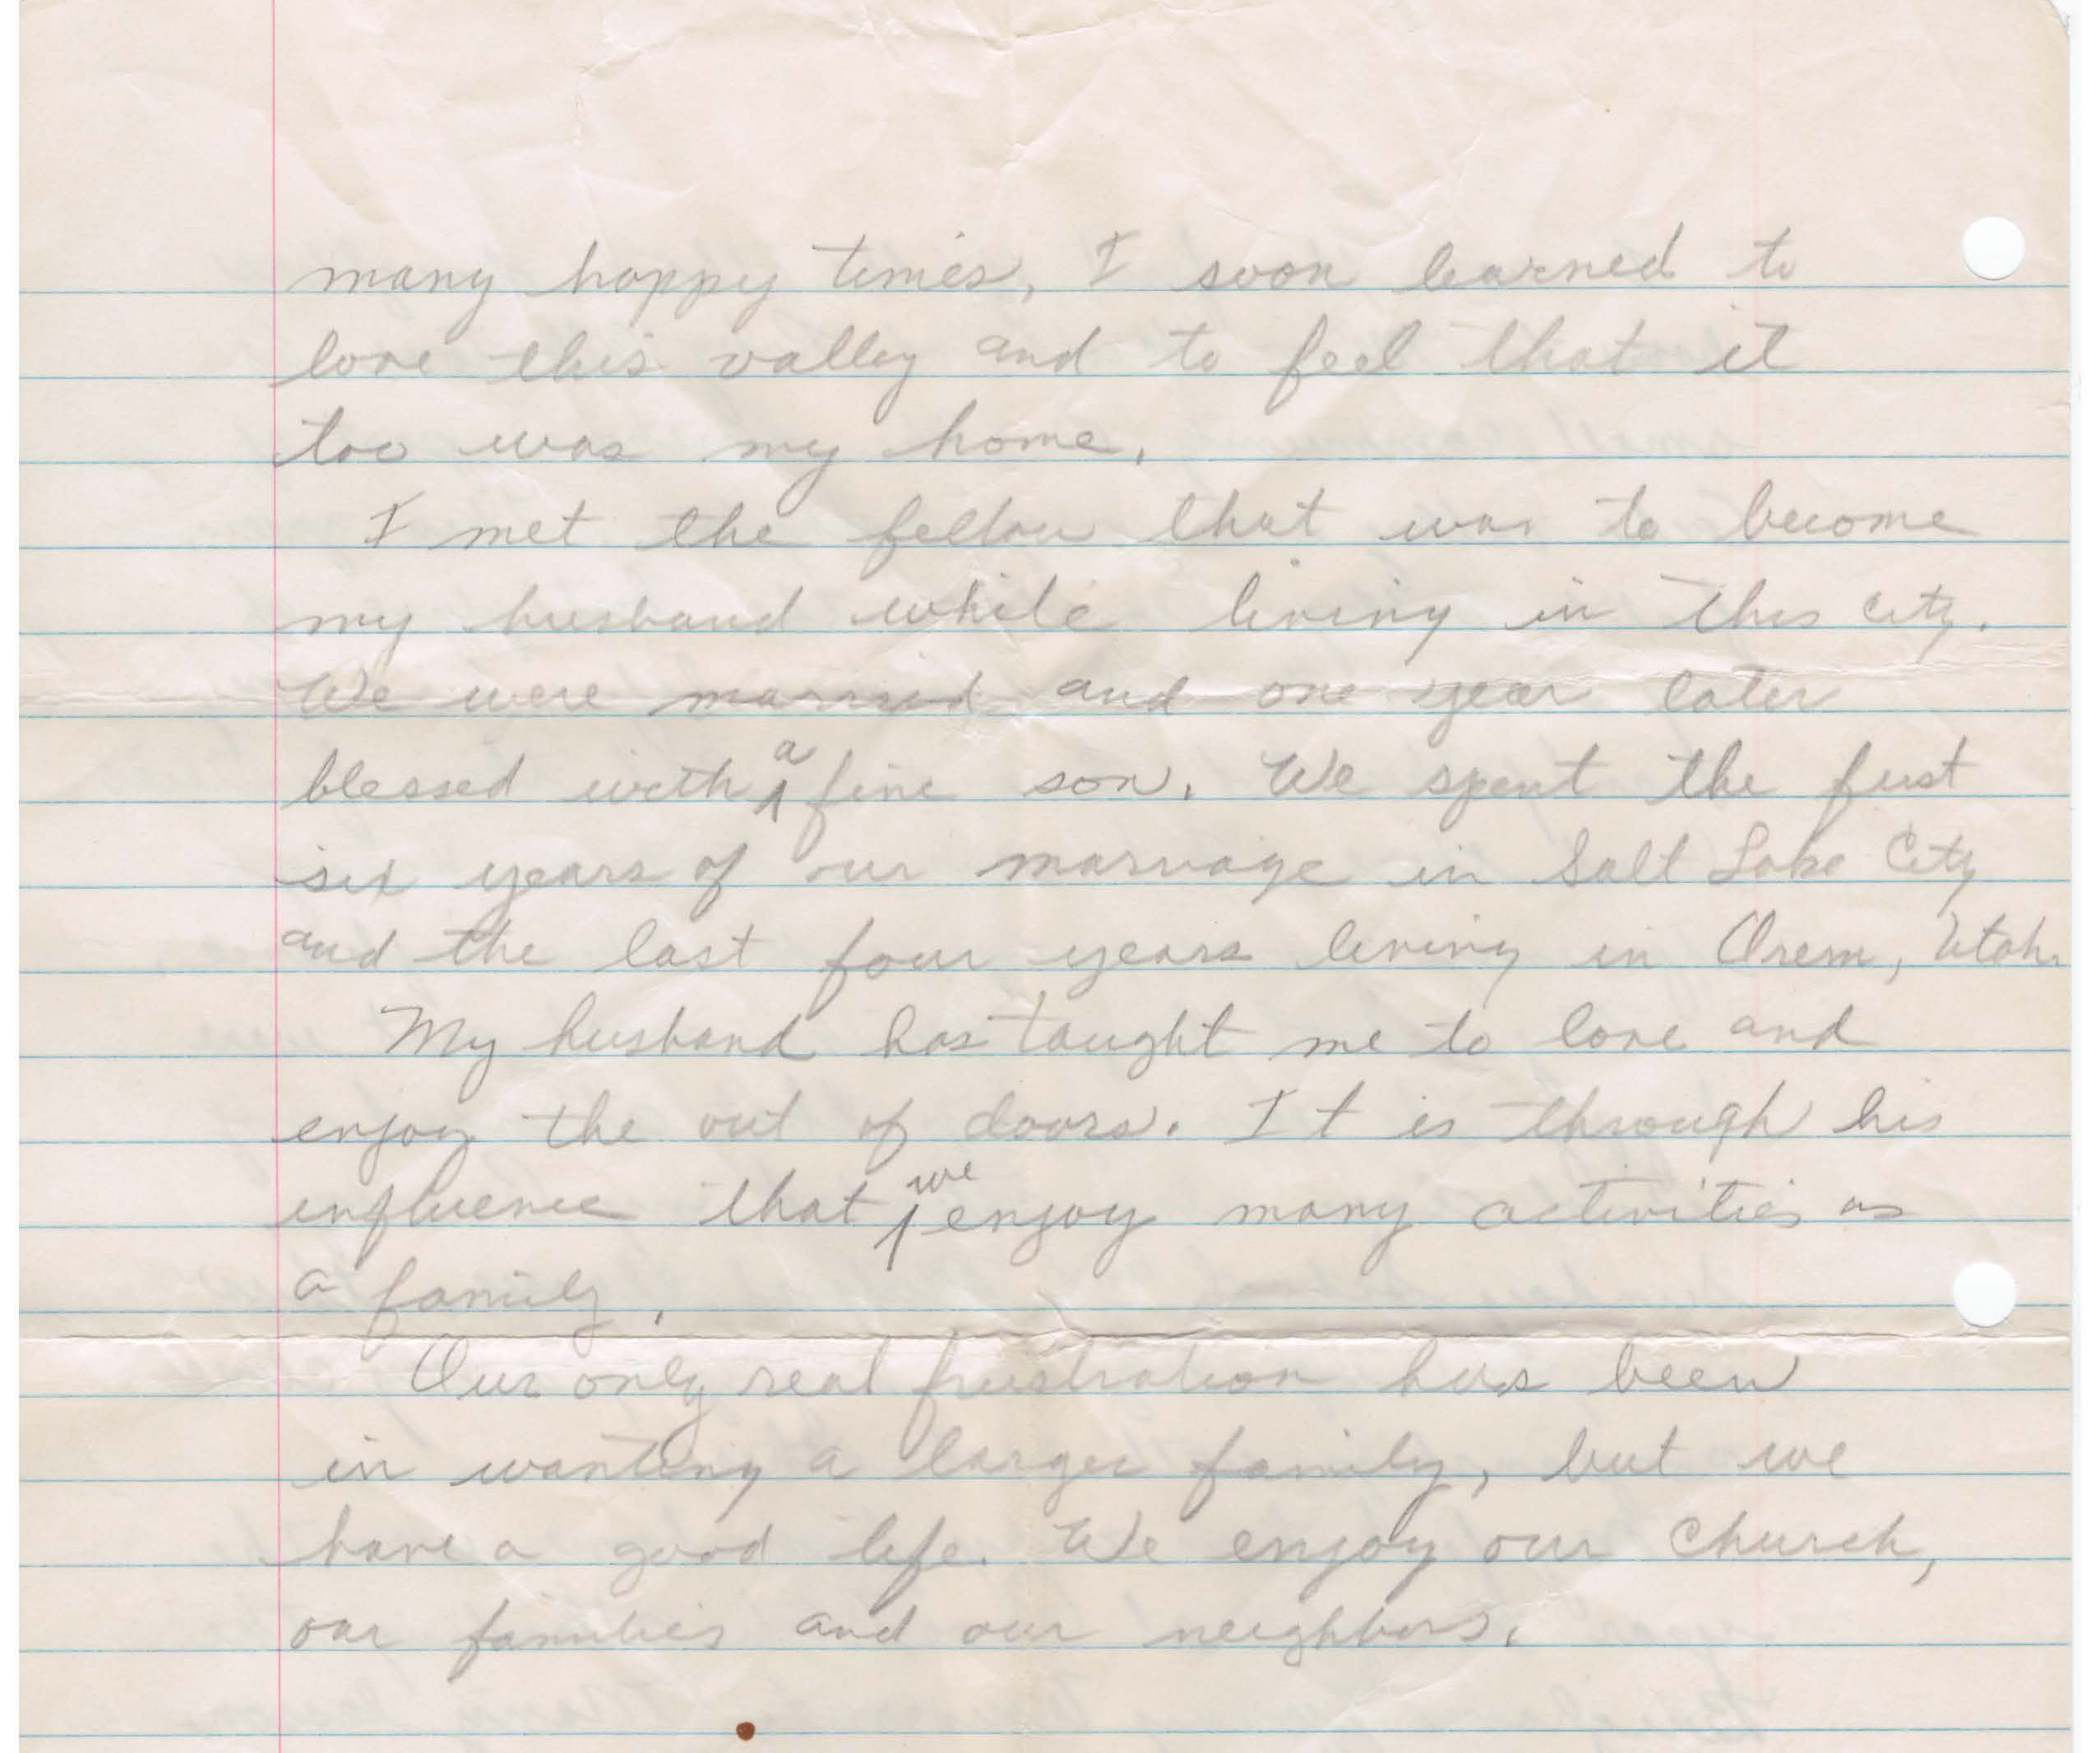 many happy times, I soon learned to
love this valley and to feel that it
too was my home.
I met the fellow that was to become
my husband while living in this city.
We were married and one year later
blessed with a fine son. We spent the first
six years of our marriage in Salt Lake City
and the last four years living in Orem, Utah.
My husband has taught me to love and
enjoy the out of doors. It is through his
influence that we enjoy many activities as
a family.
Our only real frustration has been
in wanting a larger family, but we
have a good life. We enjoy our church,
our families and our neighbors.